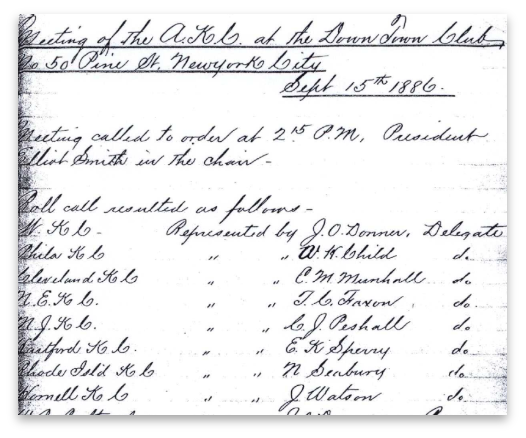 Meeting of the A.K.C. at the Down Town Club,
No 50 Pine St, Newyork City
Sept 15th 1886.
Meeting called to order at 2 15 P.M. President
Elliot Smith in the chair -
Roll call resulted as follows -
W. K. C - Represented by J. O. Donner, Delegate
Phila K C " " W. K. Child do
Cleveland K C " " C. M. Munhall do
N. E. K C. " " F. C. Faxon, do
N. J. K. C. " " C. J. Peshall do
Hartford K. C. " " E. K Sperry do.
Rhode Isld K C " " N Seabury do.
Hornell K C " " J. Watson do